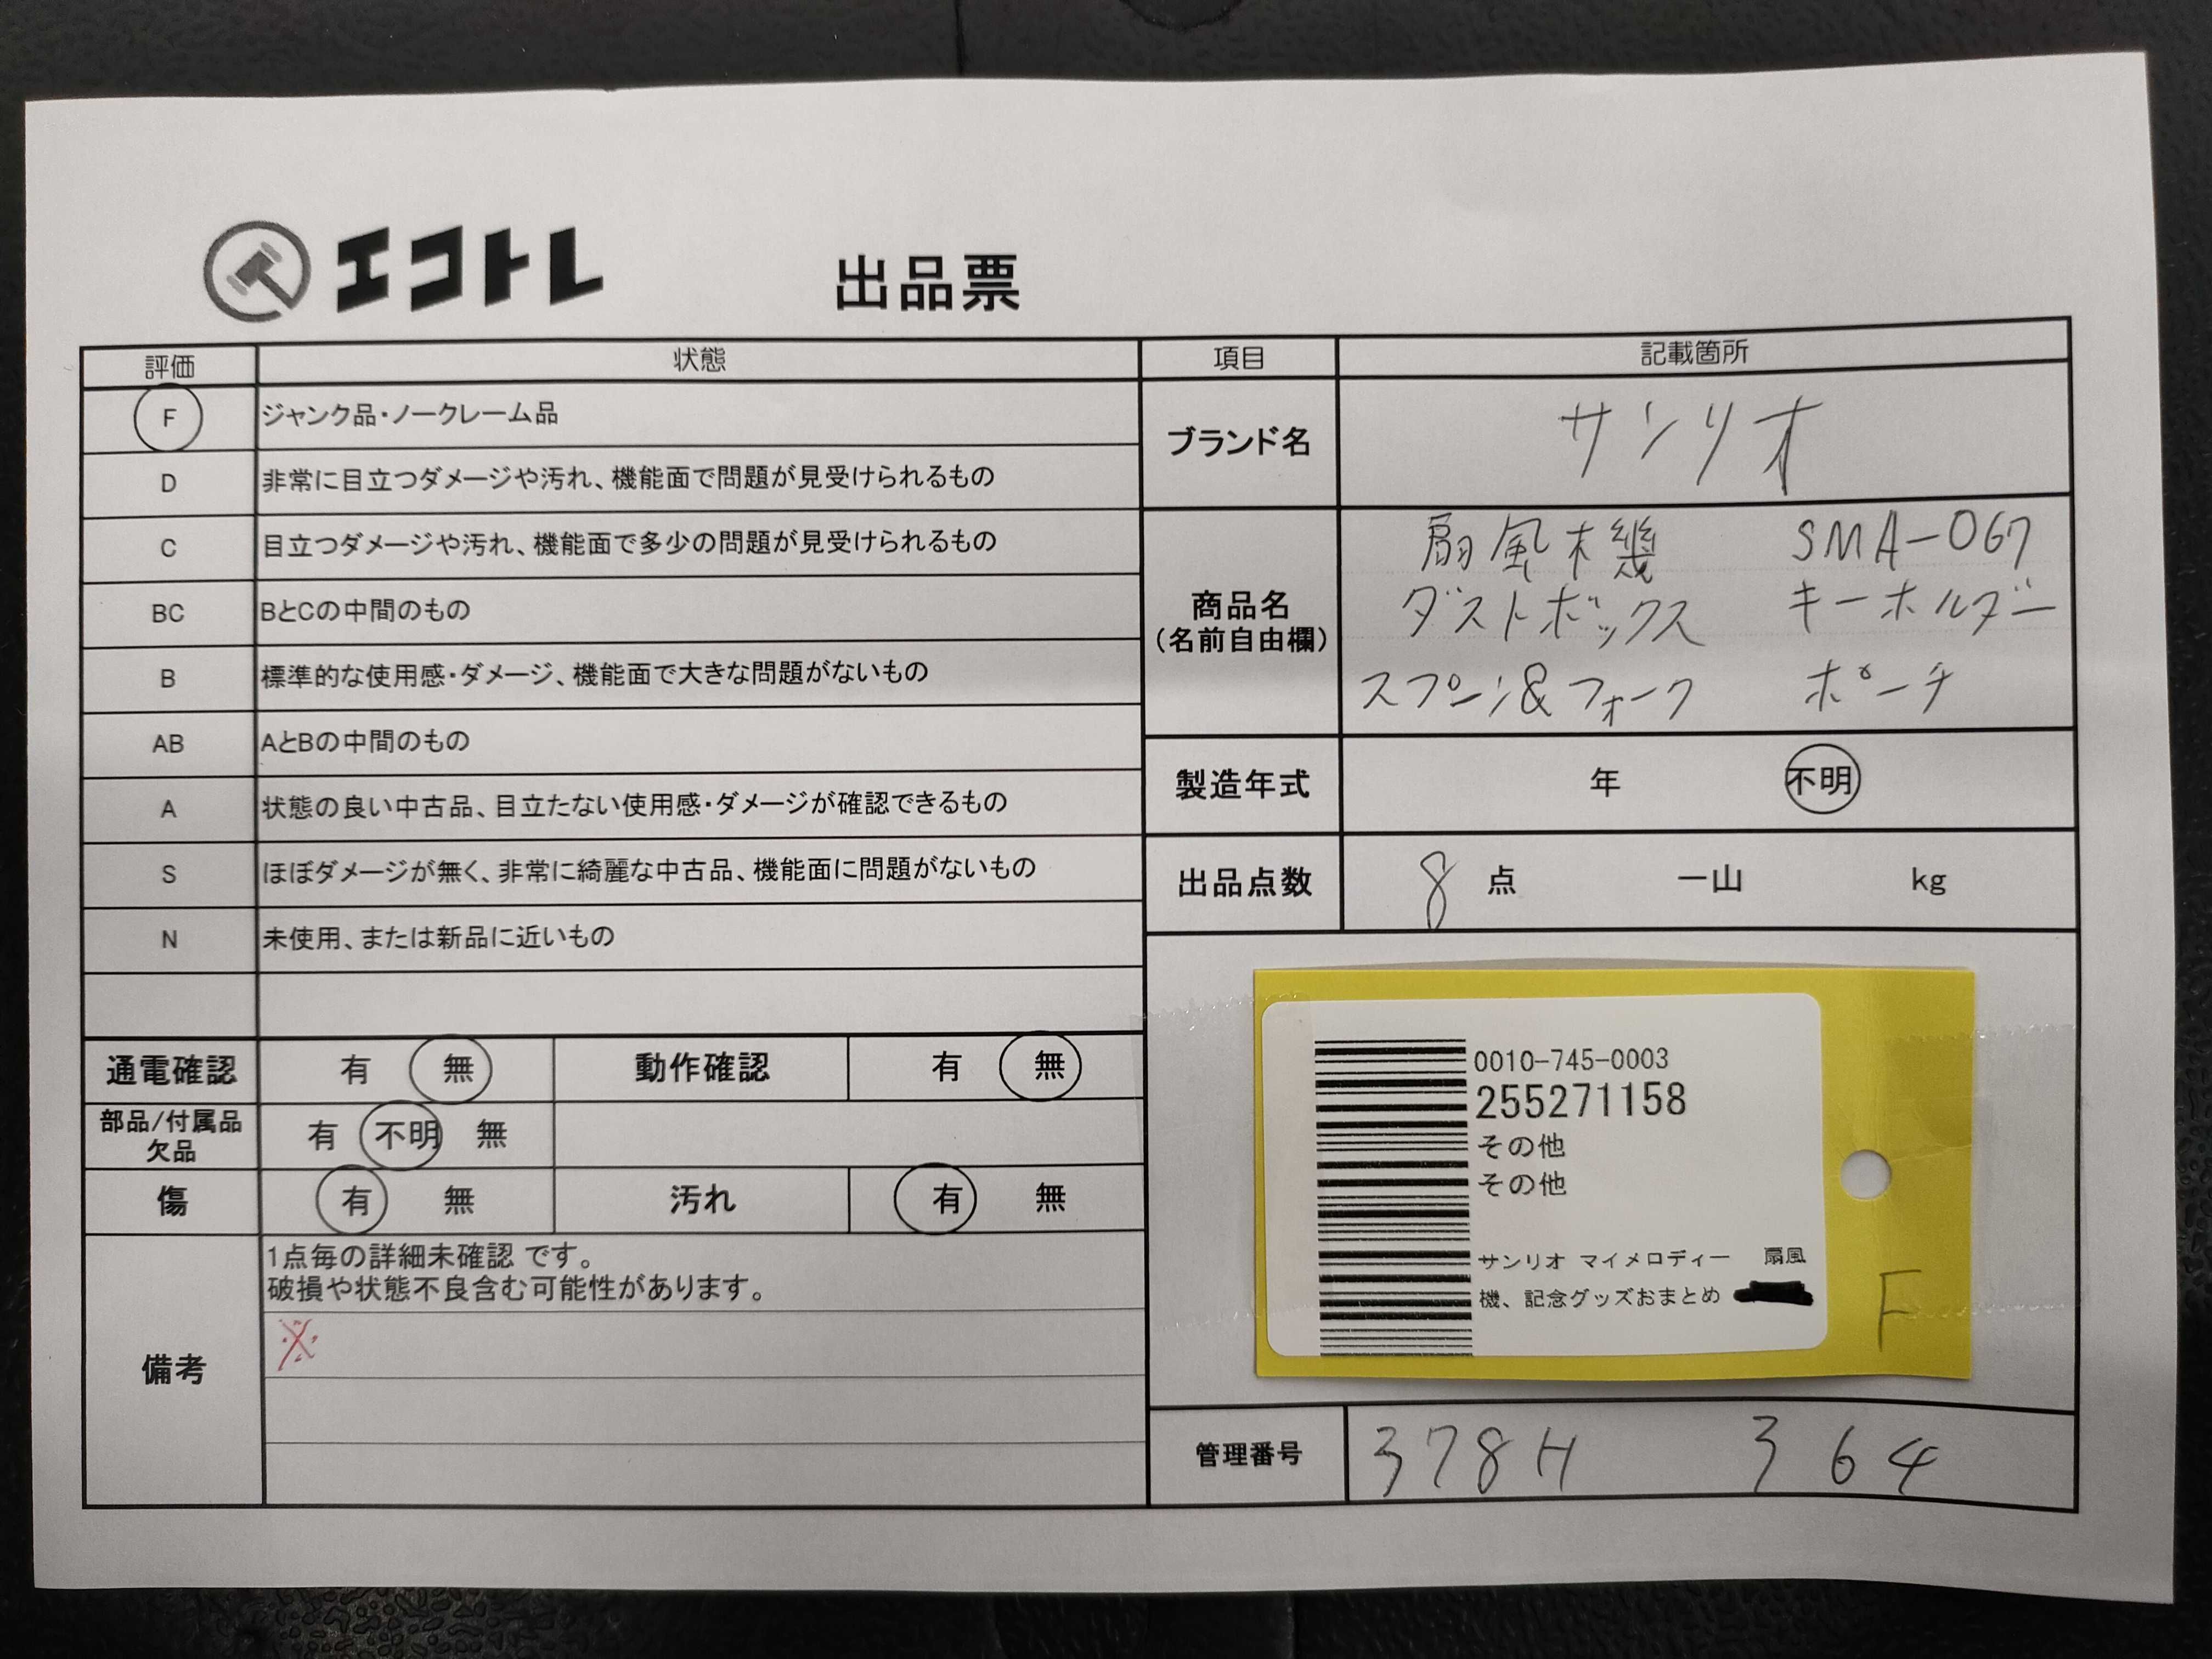 エコトレ 出品票
評価 状態
F ジャンク品・ノークレーム品
D 非常に目立つダメージや汚れ、機能面で問題が見受けられるもの
C 目立つダメージや汚れ、機能面で多少の問題が見受けられるもの
BC BとCの中間のもの
B 標準的な使用感・ダメージ、機能面で大きな問題がないもの
AB AとBの中間のもの
A 状態の良い中古品、目立たない使用感・ダメージが確認できるもの
S ほぼダメージが無く、非常に綺麗な中古品、機能面に問題がないもの
N 未使用、または新品に近いもの
通電確認 有 無 動作確認 有 無
部品/付属品
欠品 有 不明 無
傷 有 無 汚れ 有 無
備考
1点毎の詳細未確認 です。
破損や状態不良含む可能性があります。
※
項目 記載箇所
ブランド名 サンリオ
商品名
(名前自由欄)
扇風機 SMA-067
ダストボックス キーホルダー
スプーン&フォーク ポーチ
製造年式 年 不明
出品点数 8 点 一山 kg
0010-745-0003
255271158
その他
その他
サンリオ マイメロディー 扇風
機、記念グッズおまとめ
F
管理番号 378H 364